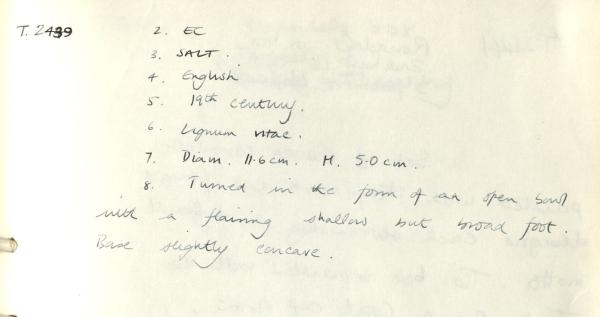 T. 2439
2. EC
3. SALT.
4. English
5. 19th century.
6. Lignum vitae.
7. Diam. 11.6 cm. H. 5.0 cm.
8. Turned in the form of an open bowl
with a flaring shallow but broad foot.
Base slightly concave.